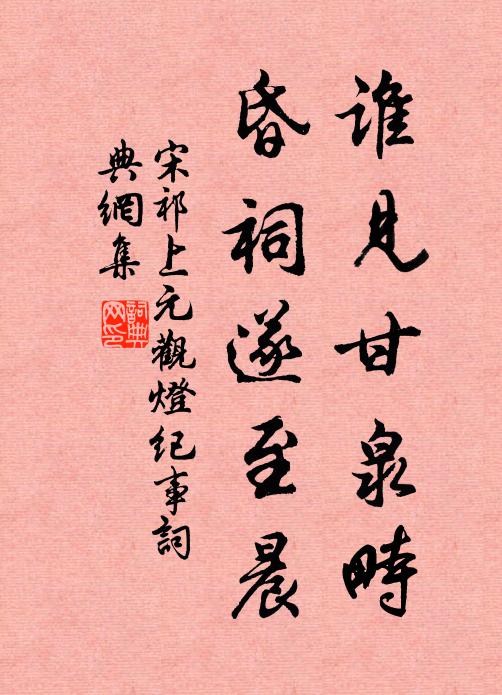 誰見甘泉畤
昏祠遂至晨
宋祁上元觀燈紀事詞
典網集
詞典网印